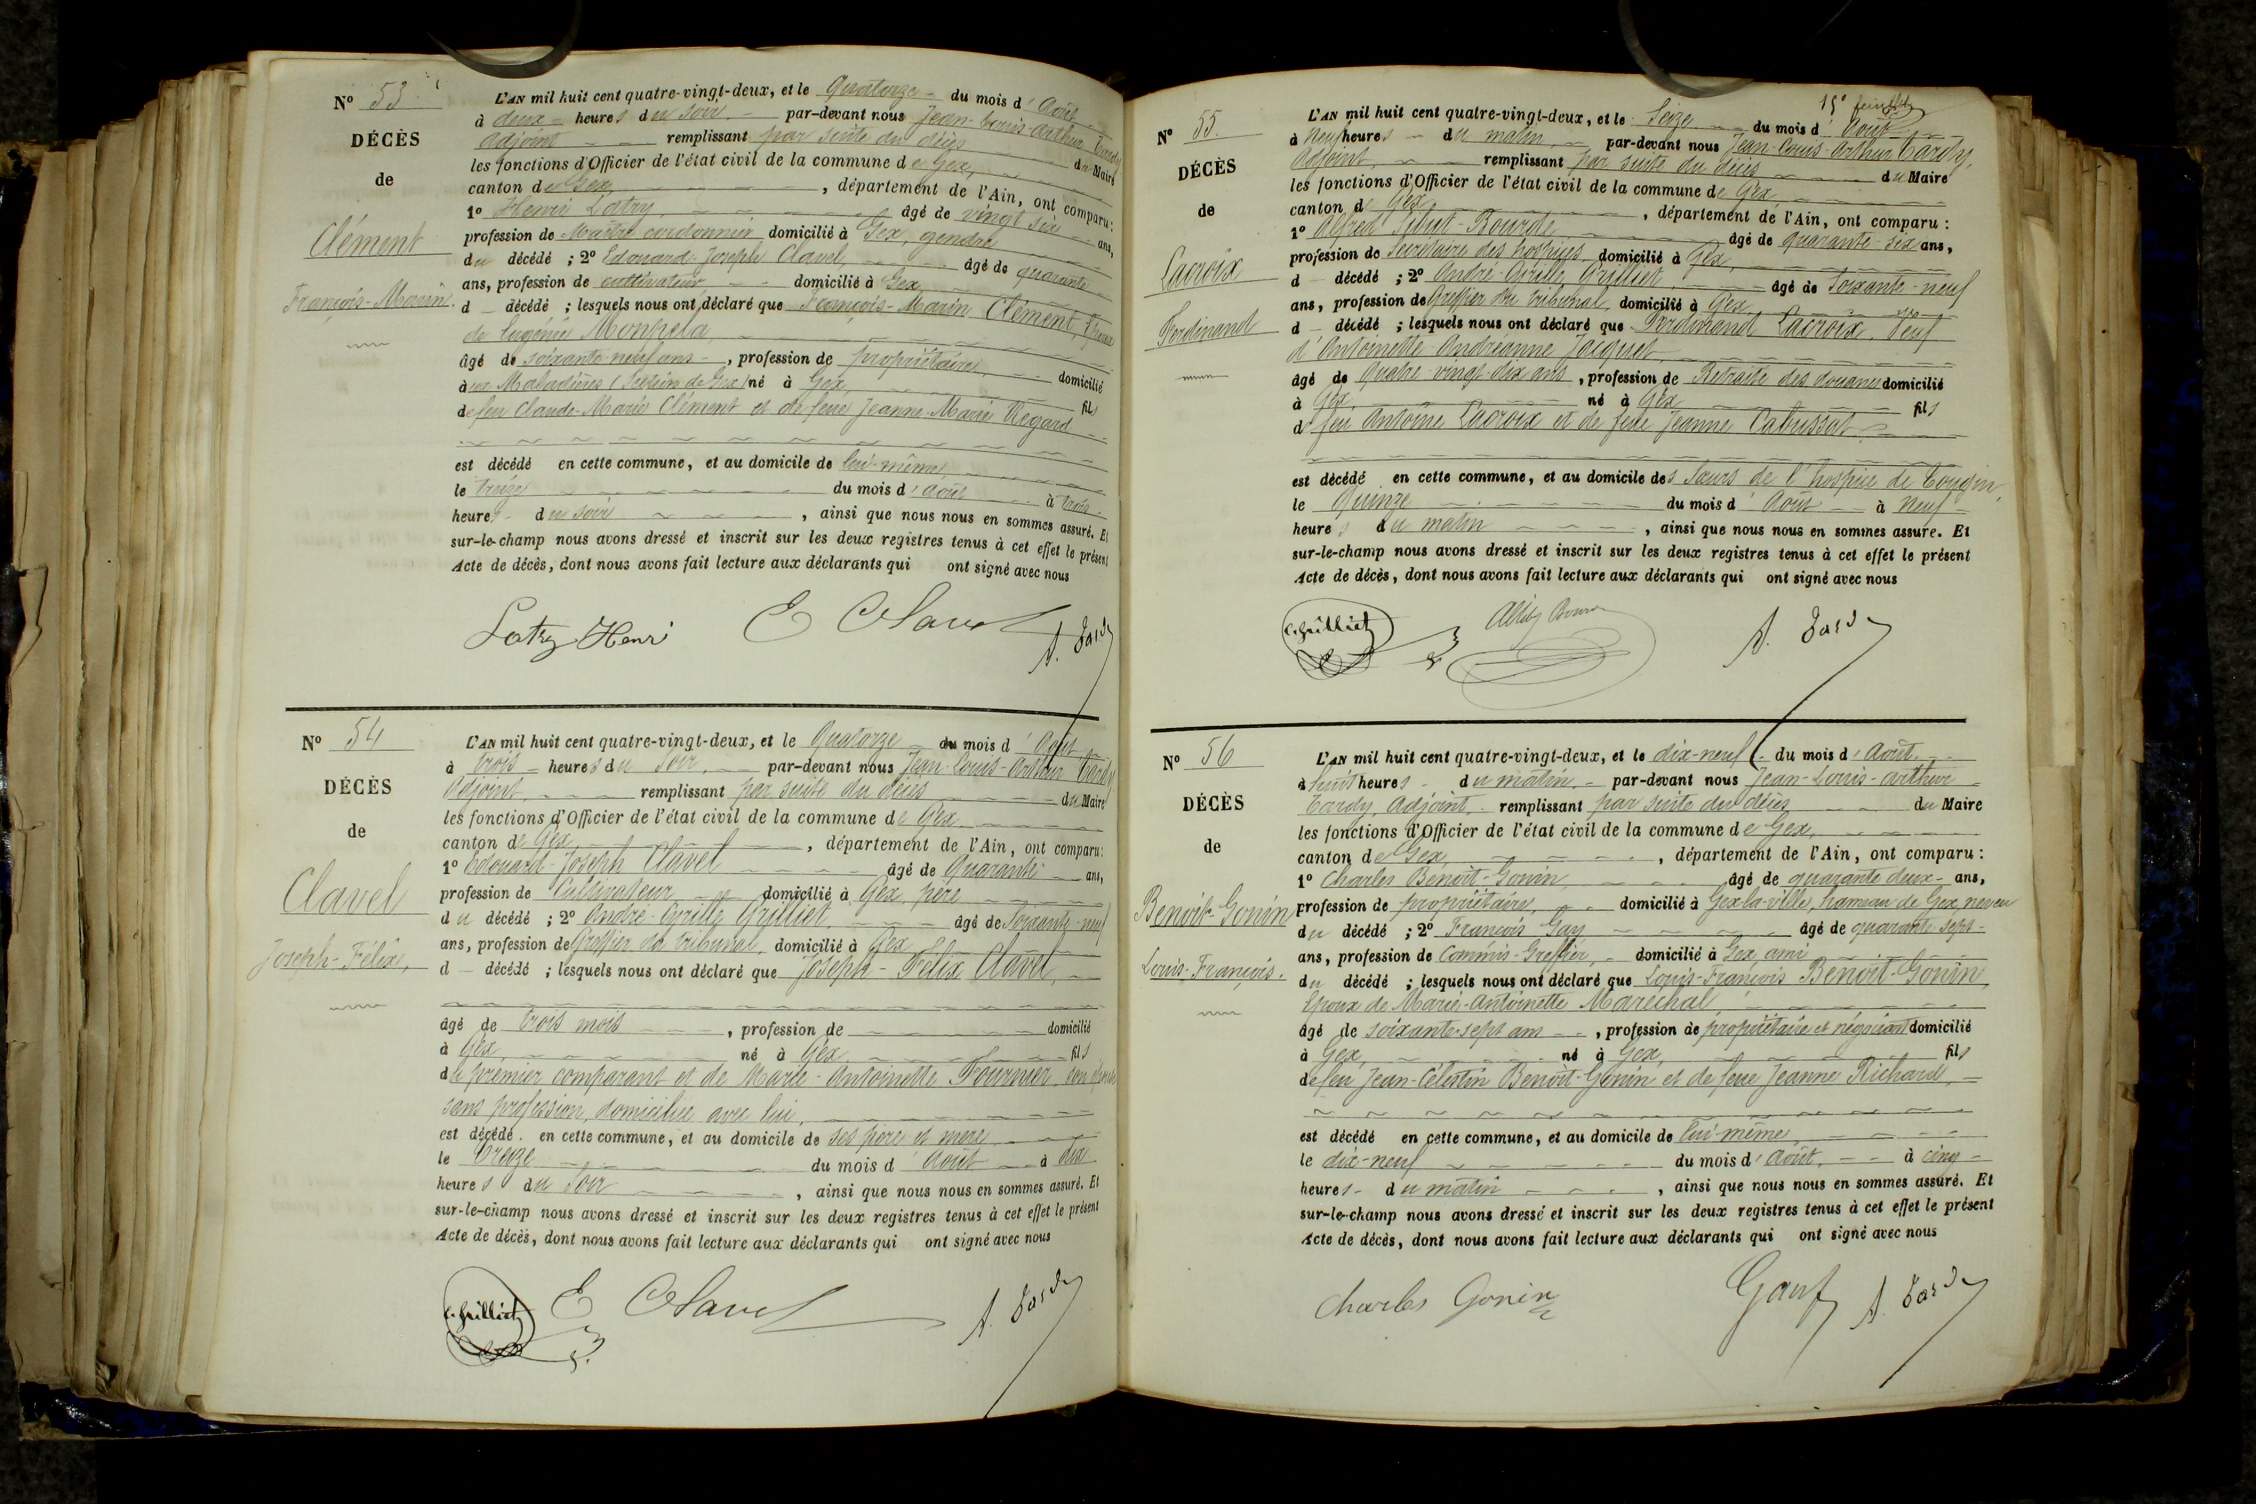 N° 53
DÉCÈS
de
Clément
François-Marin.
L'AN mil huit cent quatre-vingt-deux, et le Quatorze du mois d'Août
à deux heures du soir par-devant nous Jean-Louis-Arthur Tardy
Adjoint remplissant par suite du décès du Maire
les fonctions d'Officier de l'état civil de la commune de Gex,
canton de Gex, département de l'Ain, ont comparu :
1° Henri Latry, âgé de vingt six ans,
profession de Maître cordonnier domicilié à Gex, gendre
du décédé ; 2° Edouard-Joseph Clavel, âgé de quarante
ans, profession de cultivateur, domicilié à Gex,
d décédé ; lesquels nous ont déclaré que François-Marin Clément, Epoux
de Eugénie Monpela,
âgé de soixante neuf ans, profession de propriétaire, domicilié
aux Maladières (Section de Gex) né à Gex, fils
de feu Claude-Marie Clément et de feue Jeanne-Marie Regard
est décédé en cette commune, et au domicile de lui-même
le treize du mois d'Août à trois
heures du soir, ainsi que nous nous en sommes assuré. Et
sur-le-champ nous avons dressé et inscrit sur les deux registres tenus à cet effet le présent
Acte de décès, dont nous avons fait lecture aux déclarants qui ont signé avec nous
Latry Henri E Clavel A. Tardy
N° 54
DÉCÈS
de
Clavel
Joseph-Félix,
L'AN mil huit cent quatre-vingt-deux, et le Quatorze du mois d'Août
à trois heures du soir, par-devant nous Jean-Louis-Arthur Tardy
Adjoint, remplissant par suite du décès du Maire
les fonctions d'Officier de l'état civil de la commune de Gex
canton de Gex, département de l'Ain, ont comparu :
1° Edouard-Joseph Clavel âgé de Quarante ans,
profession de Cultivateur domicilié à Gex, père
du décédé ; 2° André-Cyrille Grilliet âgé de soixante-neuf
ans, profession de Greffier du tribunal, domicilié à Gex
d décédé ; lesquels nous ont déclaré que Joseph-Félix Clavel,
âgé de trois mois, profession de domicilié
à Gex, né à Gex fils
du premier comparant et de Marie-Antoinette Fournier, son épouse
sans profession, domiciliée avec lui,
est décédé en cette commune, et au domicile de ses père et mère
le treize du mois d'Août à dix
heures du soir, ainsi que nous nous en sommes assuré. Et
sur-le-champ nous avons dressé et inscrit sur les deux registres tenus à cet effet le présent
Acte de décès, dont nous avons fait lecture aux déclarants qui ont signé avec nous
C. Grilliet E Clavel A. Tardy
15e feuillet
N° 55.
DÉCÈS
de
Lacroix
Ferdinand
L'AN mil huit cent quatre-vingt-deux, et le Seize du mois d'Août
à Neuf heures du matin, par-devant nous Jean-Louis-Arthur Tardy,
Adjoint, remplissant par suite du décès du Maire
les fonctions d'Officier de l'état civil de la commune de Gex,
canton de Gex, département de l'Ain, ont comparu :
1° Alfred -Bourde âgé de quarante-six ans,
profession de Secrétaire des hospices domicilié à Gex,
d décédé ; 2° André-Cyrille Grilliet, âgé de Soixante-neuf
ans, profession de Greffier du tribunal, domicilié à Gex
d décédé ; lesquels nous ont déclaré que Ferdinand Lacroix, Veuf
d'Antoinette-Andréanne Jacquet,
âgé de Quatre vingt dix ans, profession de Retraité des douanes domicilié
à Gex né à Gex fils
de feu Antoine Lacroix et de feue Jeanne Cabussat
est décédé en cette commune, et au domicile des Sœurs de l'hospice de Tougin,
le Quinze du mois d'Août à Neuf
heures du matin, ainsi que nous nous en sommes assuré. Et
sur-le-champ nous avons dressé et inscrit sur les deux registres tenus à cet effet le présent
Acte de décès, dont nous avons fait lecture aux déclarants qui ont signé avec nous
C. Grilliet A. Tardy
N° 56
DÉCÈS
de
Benoit-Gonin
Louis-François.
L'AN mil huit cent quatre-vingt-deux, et le dix-neuf du mois d'Août
à huit heures du matin, par-devant nous Jean-Louis-Arthur
Tardy, Adjoint, remplissant par suite du décès du Maire
les fonctions d'Officier de l'état civil de la commune de Gex,
canton de Gex, département de l'Ain, ont comparu :
1° Charles Benoit-Gonin, âgé de quarante deux ans,
profession de propriétaire, domicilié à Gex-la-ville, hameau de Gex, neveu
du décédé ; 2° François Gay âgé de quarante-sept
ans, profession de Commis-Greffier, domicilié à Gex ami
du décédé ; lesquels nous ont déclaré que Louis-François Benoit-Gonin,
Epoux de Marie-Antoinette Maréchal
âgé de soixante-sept ans, profession de propriétaire et négociant domicilié
à Gex, né à Gex, fils
de feu Jean-Célestin Benoit-Gonin et de feue Jeanne Richard,
est décédé en cette commune, et au domicile de lui-même,
le dix-neuf du mois d'Août, à cinq
heures du matin, ainsi que nous nous en sommes assuré. Et
sur-le-champ nous avons dressé et inscrit sur les deux registres tenus à cet effet le présent
Acte de décès, dont nous avons fait lecture aux déclarants qui ont signé avec nous
Charles Gonin Gay A. Tardy